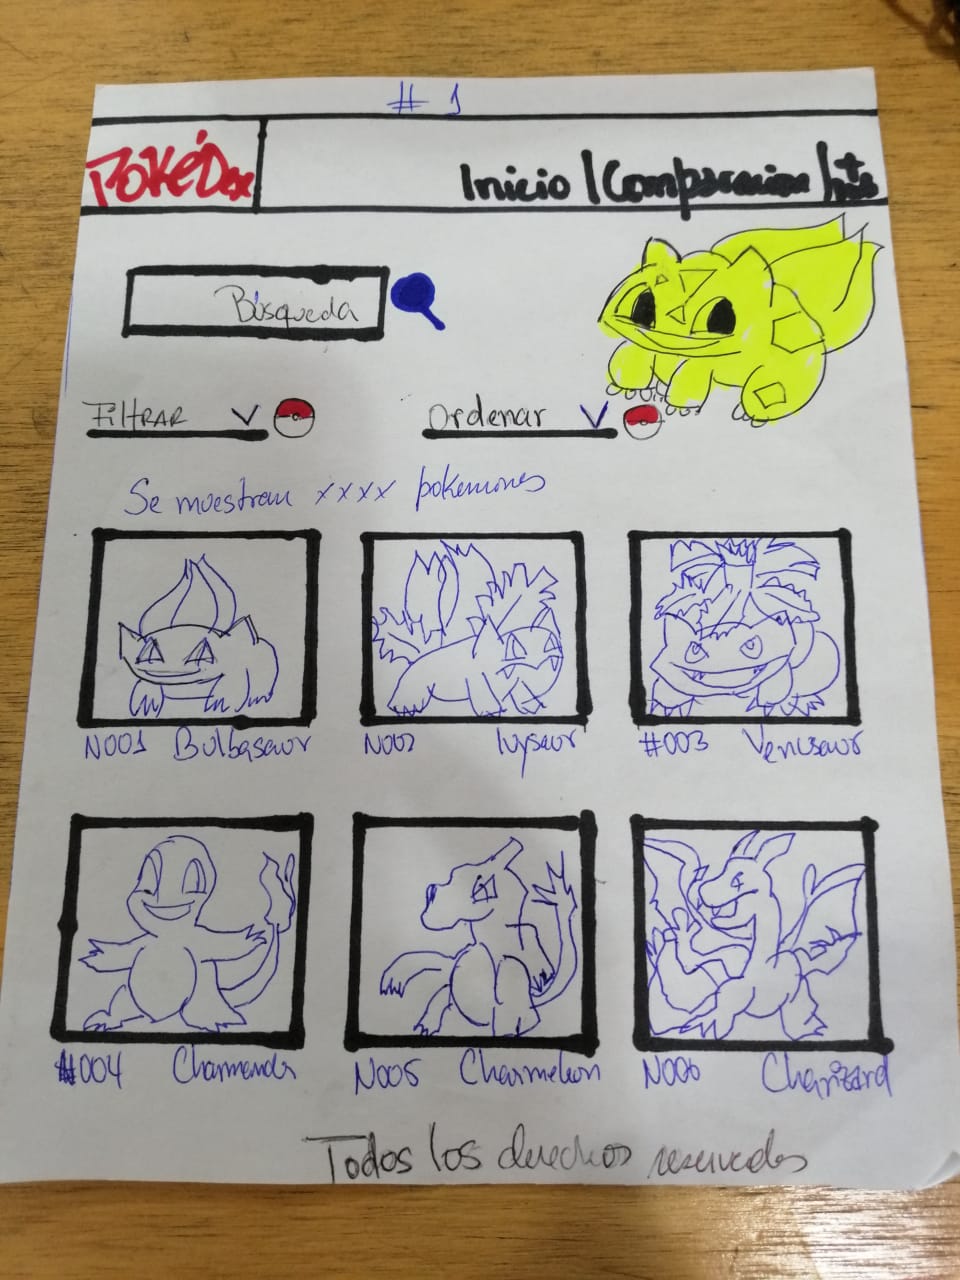 # 1
POKÉDex
Inicio | Comparacion | + info
Búsqueda
FILTRAR
Ordenar
Se muestran xxxx pokemones
N001 Bulbasaur
N002 Ivysaur
#003 Venusaur
#004 Charmander
N005 Charmeleon
N006 Charizard
Todos los derechos reservados